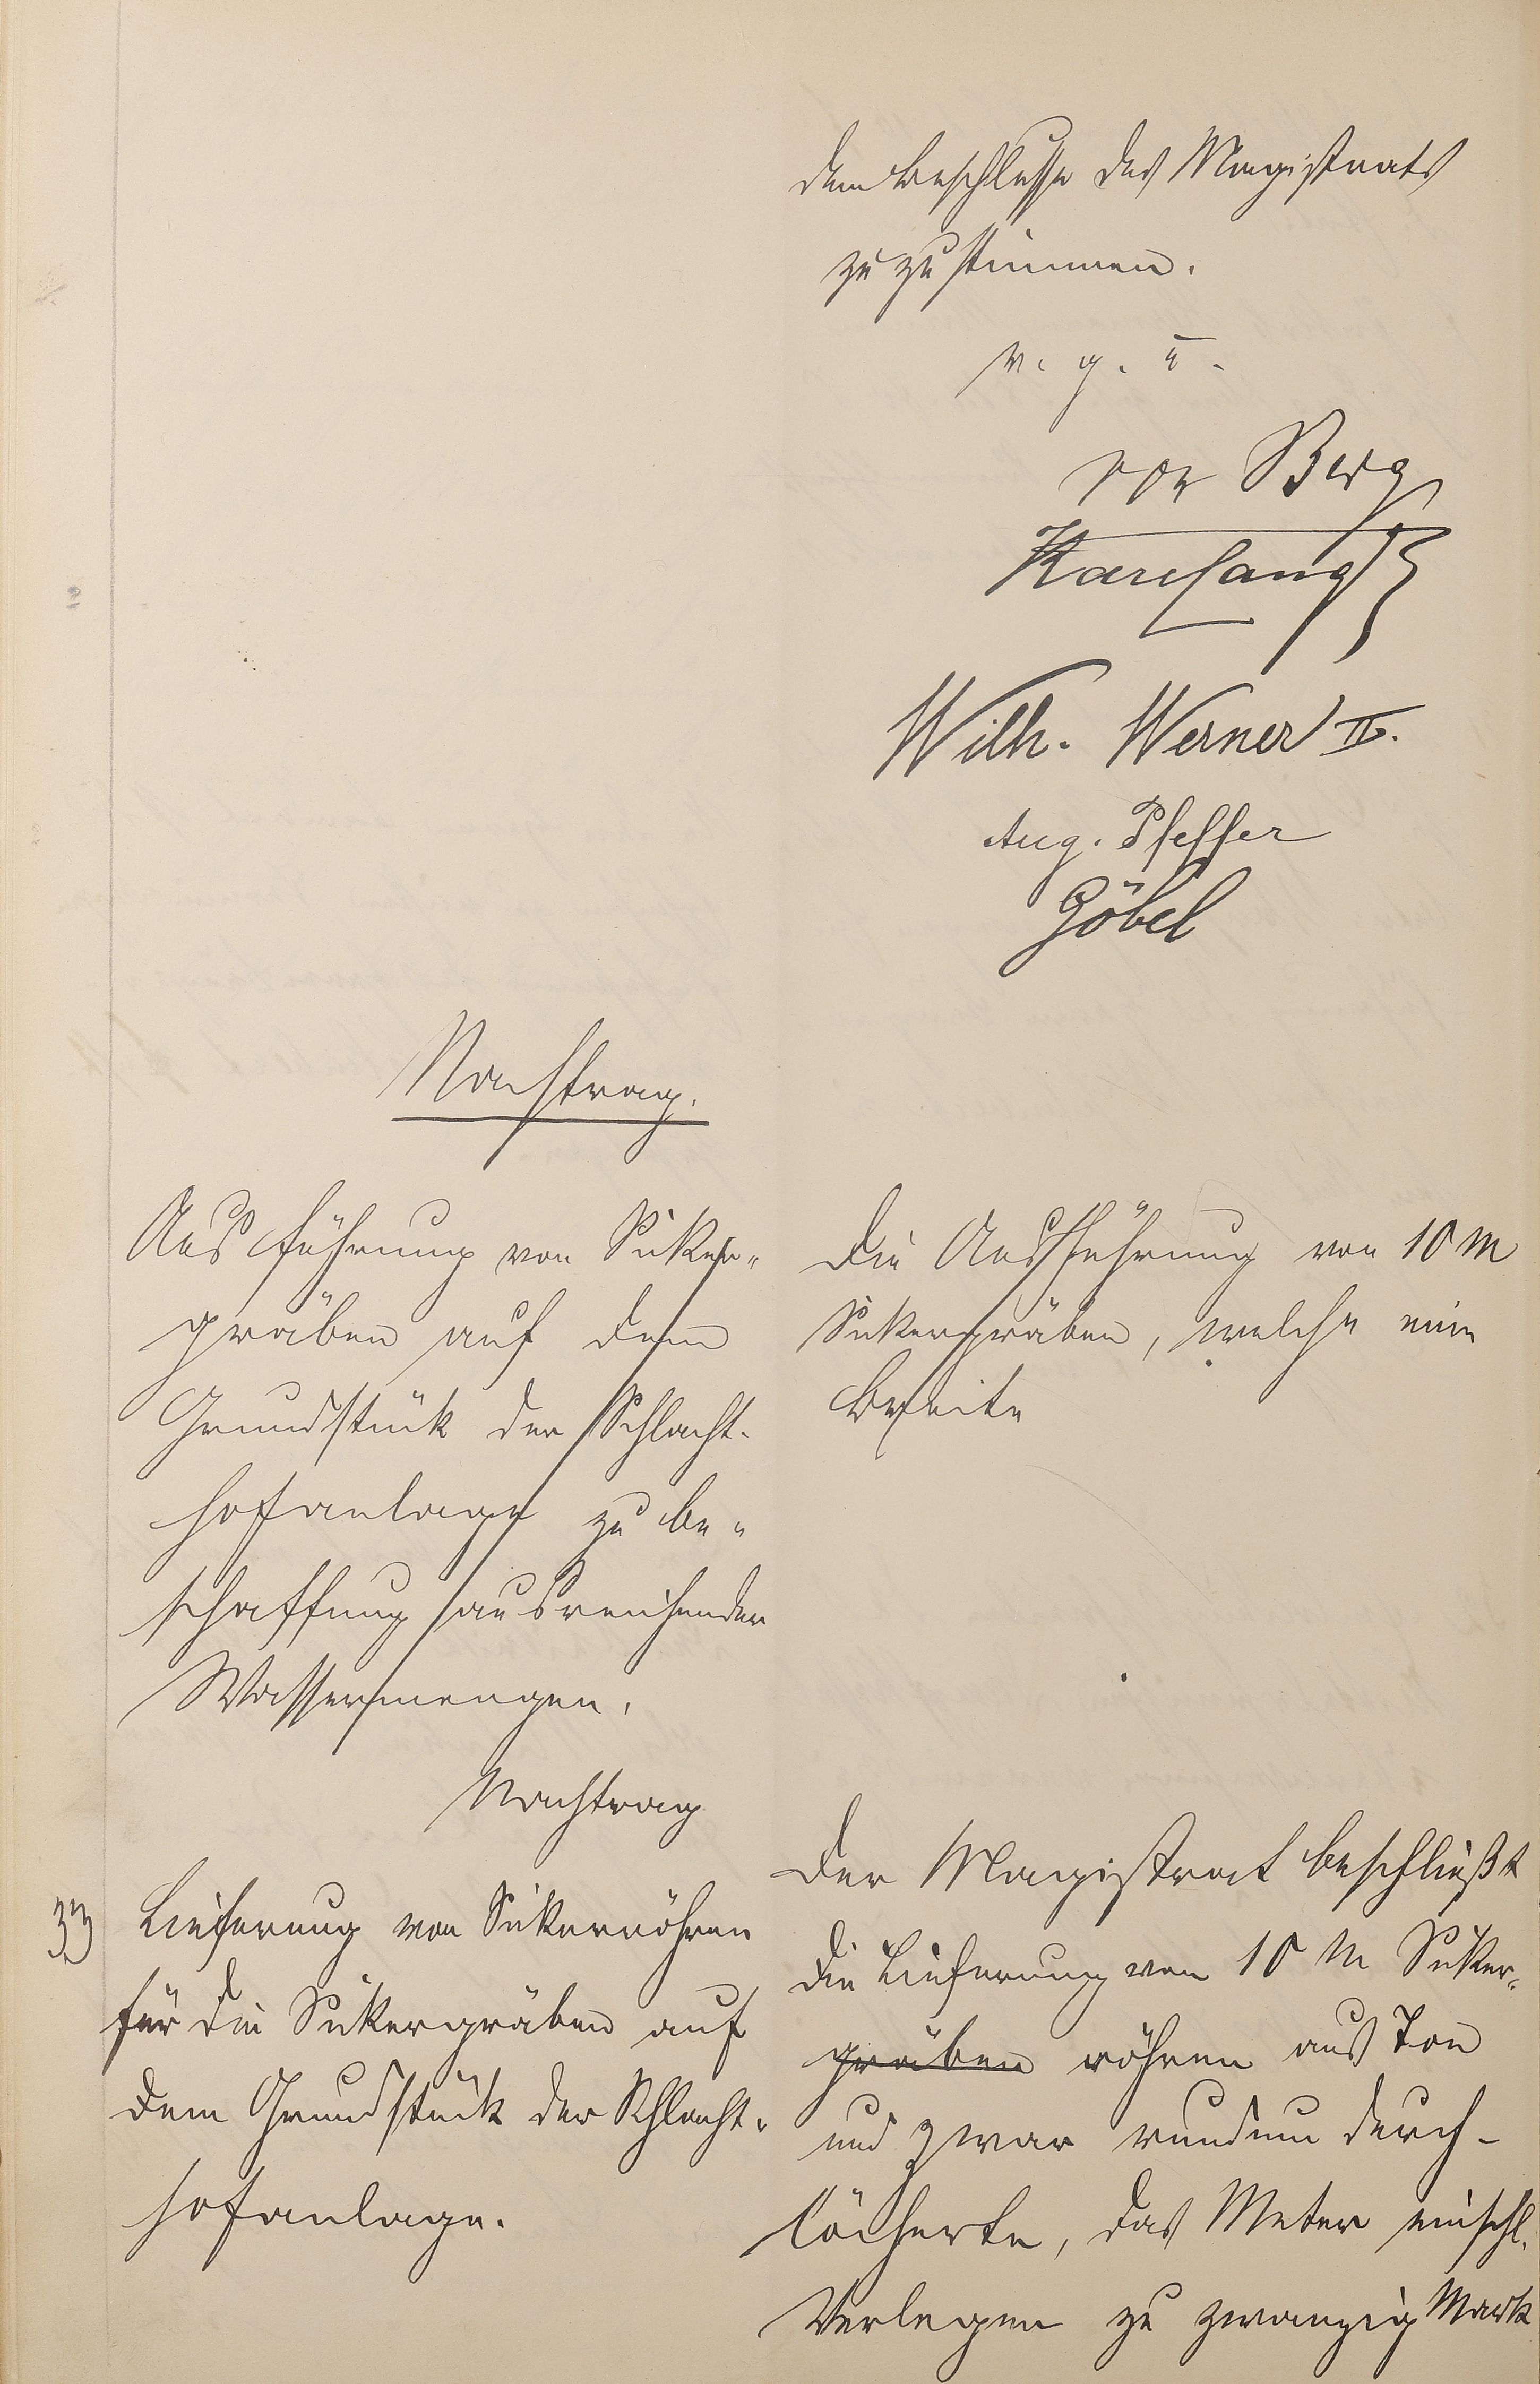 dem Beschlusse des Magistrats
zuzustimmen.
v. g. u.
von Berg
Karl Lang
Wilh. Werner II.
Aug. Pfeffer
Göbel
Nachtrag.
Ausführung von Sicker„
gräben auf dem
Grundstück der Schlacht-
hofanlage zu be„
schaffung ausreichender
Wassermengen.
Die Ausführung von 10 m
Sickergräben, welche eine
Breite
Nachtrag
33 Lieferung von Sickerröhren
für die Sickergräben auf
dem Grundstück der Schlacht„
hofanlage.
Der Magistrat beschließt
die Lieferung von 10 m Sicker„
gräben röhren aus Ton
und zwar rundum durch-
löcherte, das Meter einschl.
Verlegen zu zwanzig Mark